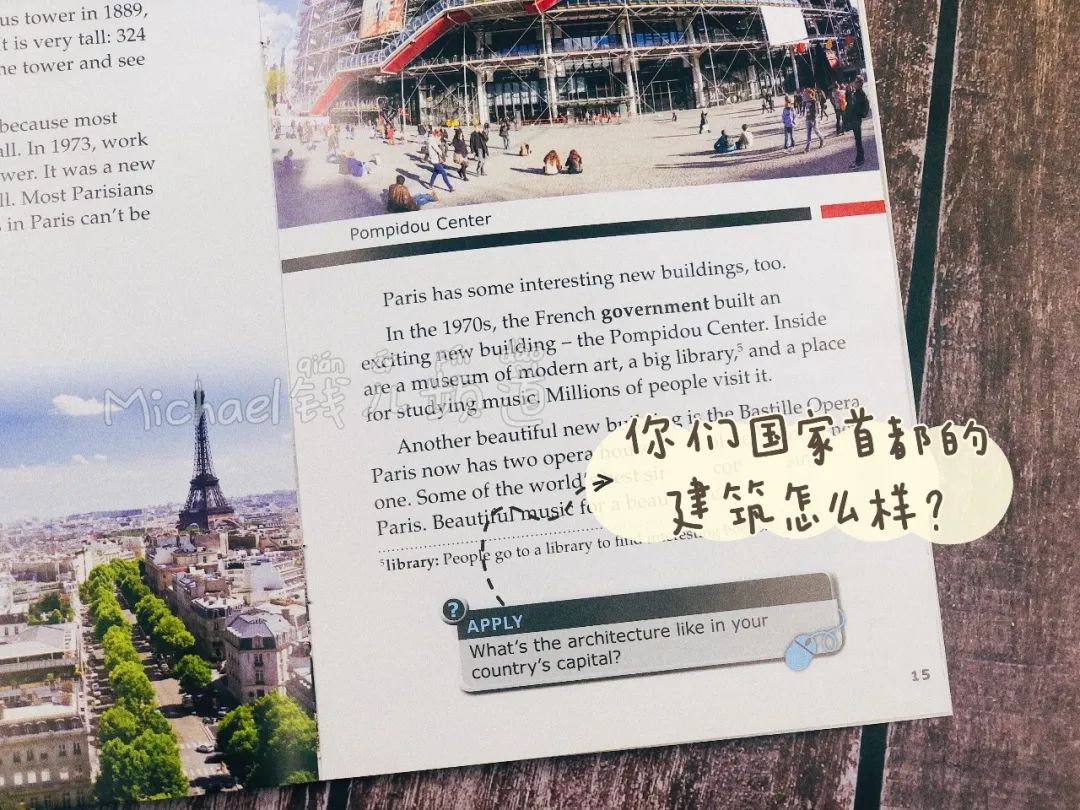 us tower in 1889,
t is very tall: 324
he tower and see
because most
all. In 1973, work
wer. It was a new
ll. Most Parisians
s in Paris can't be
Pompidou Center
Paris has some interesting new buildings, too.
In the 1970s, the French government built an
exciting new building – the Pompidou Center. Inside
are a museum of modern art, a big library,⁵ and a place
for studying music. Millions of people visit it.
Another beautiful new building is the Bastille Opera
Paris now has two opera
one. Some of the world's best
Paris. Beautiful music for a
⁵library: People go to a library to find interesting
你们国家首都的
建筑怎么样?
Michael钱儿频道
qián
? APPLY
What's the architecture like in your
country's capital?
15